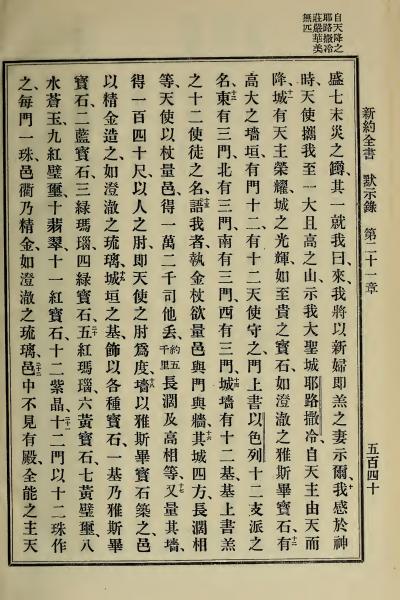 自天降之
耶路撒冷
莊嚴華美
無匹
新約全書 默示錄 第二十一章 五百四十
盛七末災之鐏、其一就我曰、來、我將以新婦即羔之妻示爾、十我感於神
時、天使攜我至一大且高之山、示我大聖城耶路撒冷、自天主由天而
降、十一城有天主榮耀、城之光輝、如至貴之寶石、如澄澈之雅斯畢寶石、十二有
高大之墻垣、有門十二、有十二天使守之、門上書以色列十二支派之
名、十三東有三門、北有三門、南有三門、西有三門、十四城墻有十二基、基上書羔
之十二使徒之名、十五語我者、執金杖、欲量邑與門與牆、十六其城四方、長濶相
等、天使以杖量邑、得一萬二千司他丟、約五千里長濶及高相等、十七又量其墻、
得一百四十尺、以人之肘、即天使之肘為度、十八墻以雅斯畢寶石築之、邑
以精金造之、如澄澈之琉璃、十九城垣之基、飾以各種寶石、一基乃雅斯畢
寶石、二藍寶石、三綠瑪瑙、四綠寶石、二十五紅瑪瑙、六黃寶石、七黃璧璽、八
水蒼玉、九紅璧璽、十翡翠、十一紅寶石、十二紫晶、二十一十二門以十二珠作
之、每門一珠、邑衢乃精金、如澄澈之琉璃、二十二邑中不見有殿、全能之主天